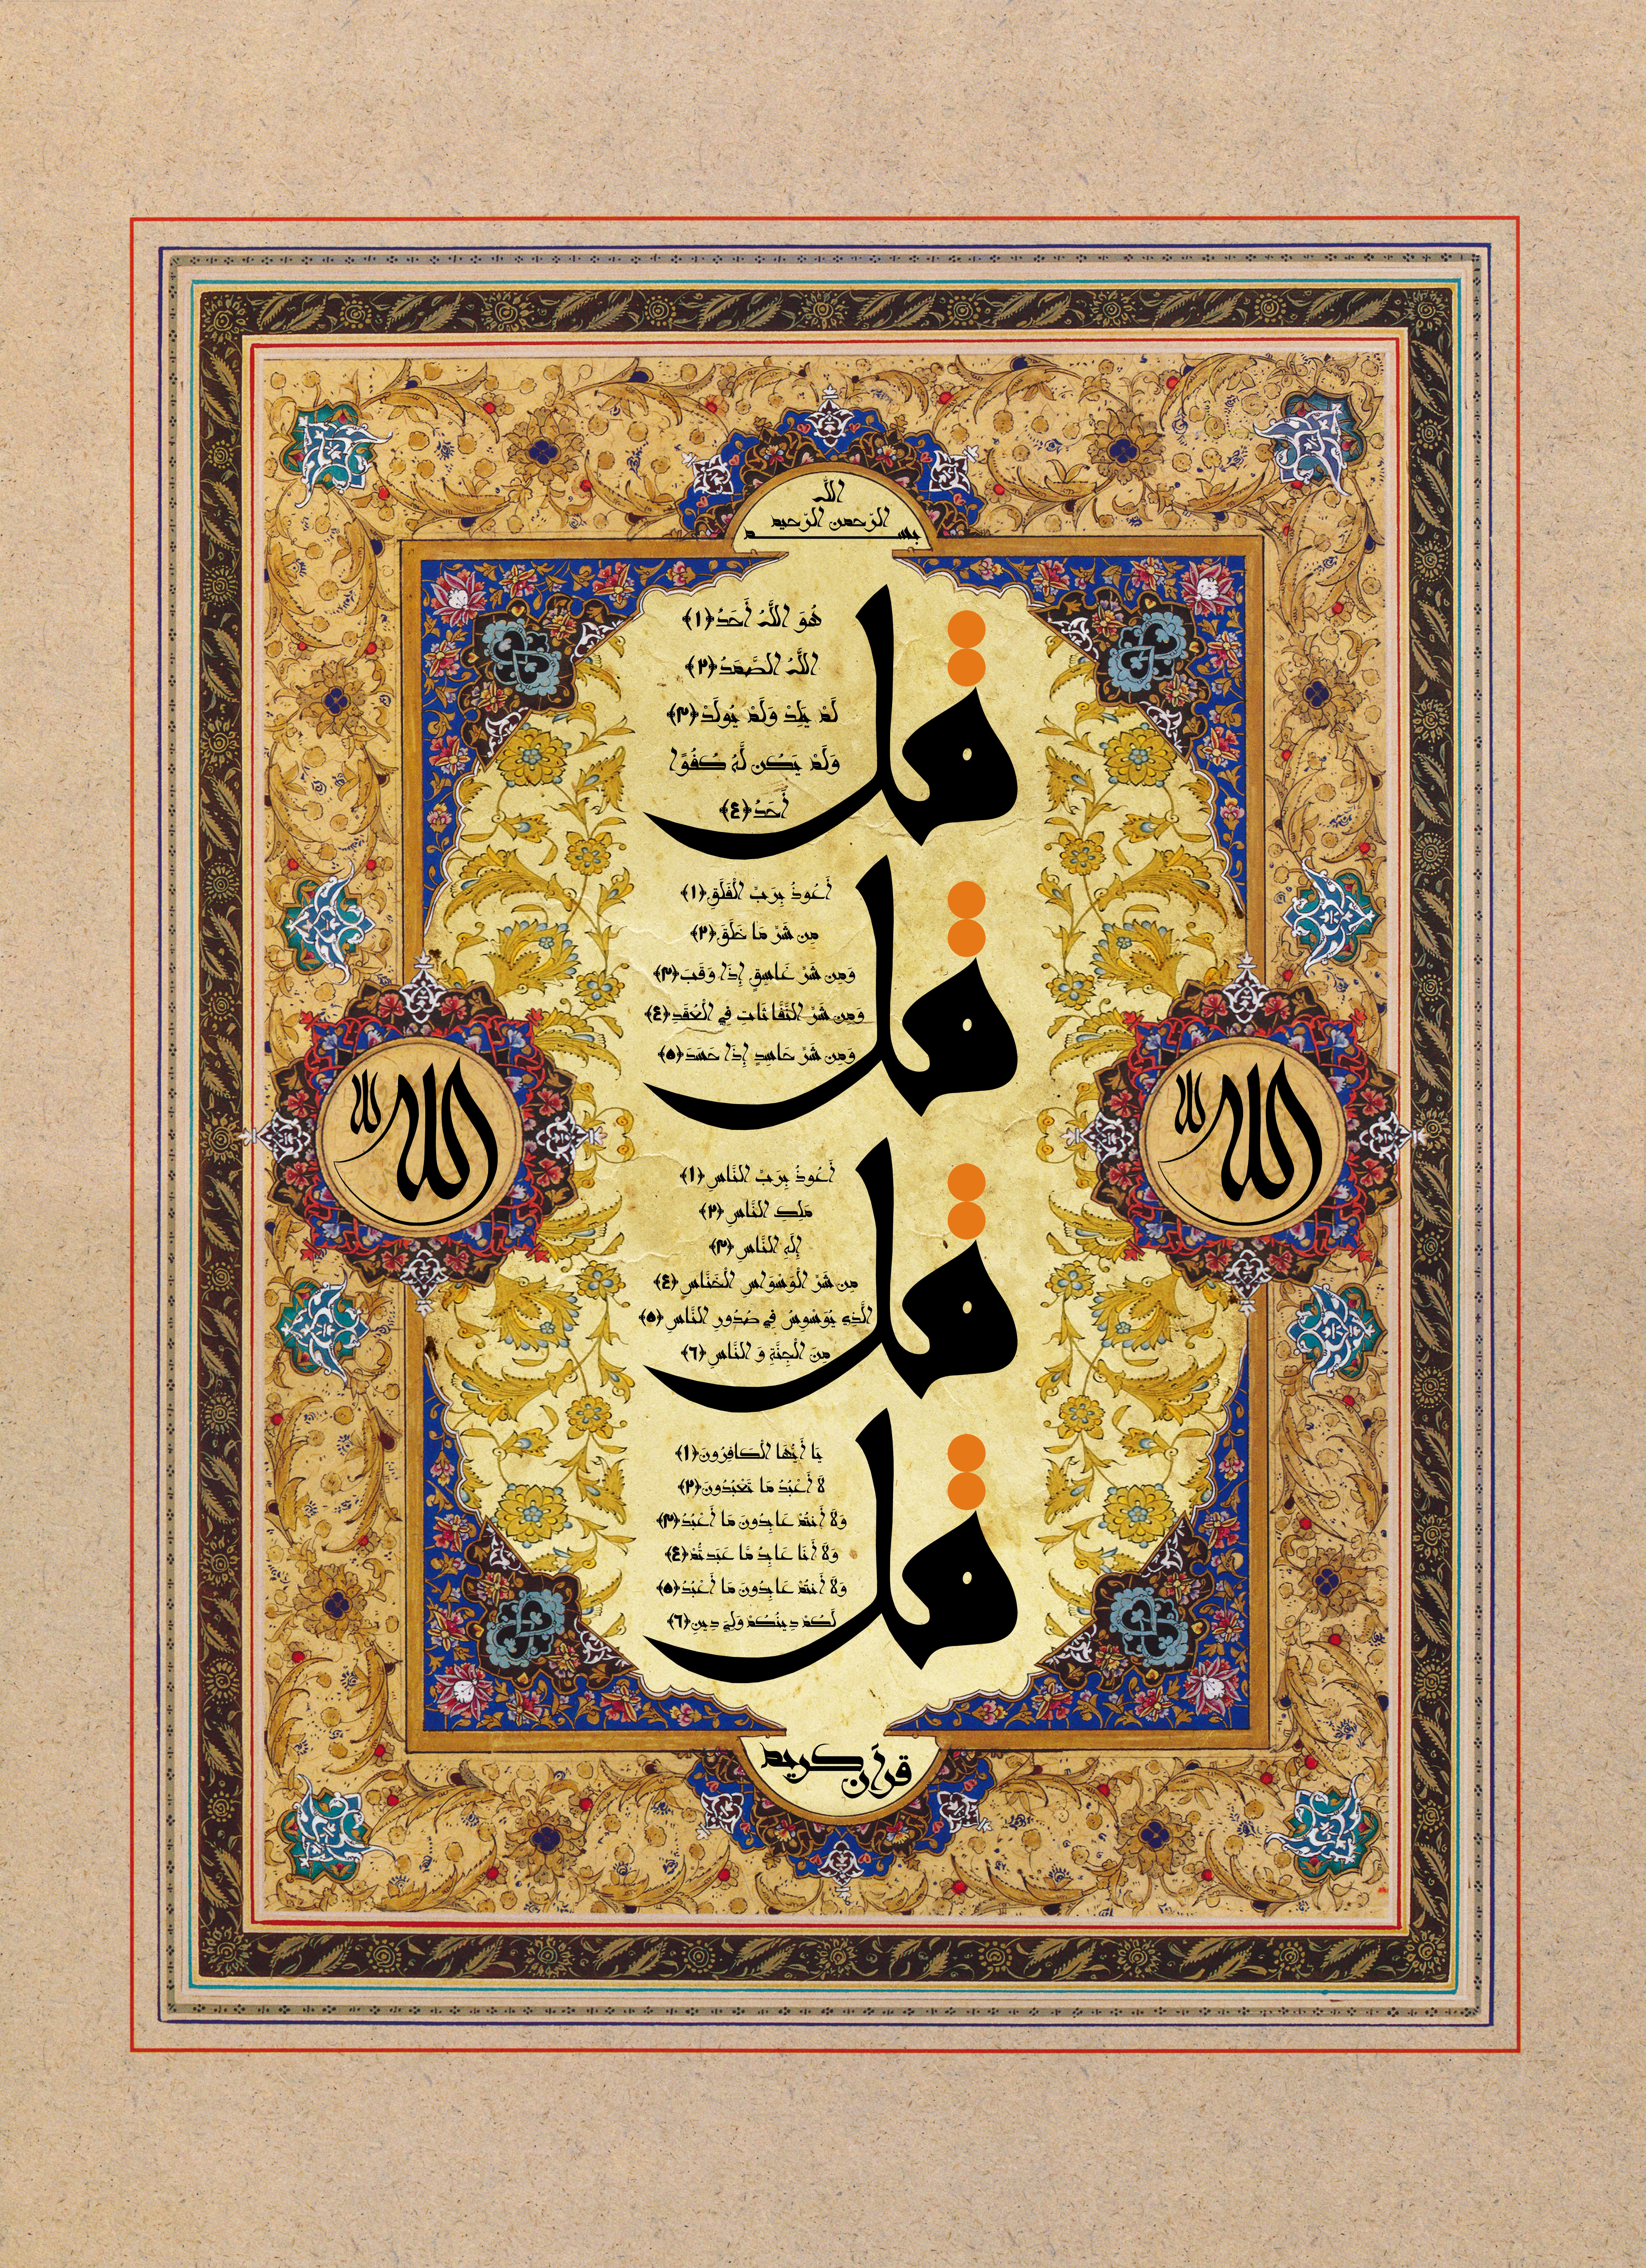 الله
الرّحمن الرّحيم
بسم
قل
هُوَ اللَّهُ أَحَدٌ ﴿١﴾
اللَّهُ الصَّمَدُ ﴿٢﴾
لَمْ يَلِدْ وَلَمْ يُولَدْ ﴿٣﴾
وَلَمْ يَكُن لَّهُ كُفُوًا
أَحَدٌ ﴿٤﴾
قل
أَعُوذُ بِرَبِّ الْفَلَقِ ﴿١﴾
مِن شَرِّ مَا خَلَقَ ﴿٢﴾
وَمِن شَرِّ غَاسِقٍ إِذَا وَقَبَ ﴿٣﴾
وَمِن شَرِّ النَّفَّاثَاتِ فِي الْعُقَدِ ﴿٤﴾
وَمِن شَرِّ حَاسِدٍ إِذَا حَسَدَ ﴿٥﴾
الله
الله
قل
أَعُوذُ بِرَبِّ النَّاسِ ﴿١﴾
مَلِكِ النَّاسِ ﴿٢﴾
إِلَهِ النَّاسِ ﴿٣﴾
مِن شَرِّ الْوَسْوَاسِ الْخَنَّاسِ ﴿٤﴾
الَّذِي يُوَسْوِسُ فِي صُدُورِ النَّاسِ ﴿٥﴾
مِنَ الْجِنَّةِ وَ النَّاسِ ﴿٦﴾
قل
يَا أَيُّهَا الْكَافِرُونَ ﴿١﴾
لَا أَعْبُدُ مَا تَعْبُدُونَ ﴿٢﴾
وَلَا أَنتُمْ عَابِدُونَ مَا أَعْبُدُ ﴿٣﴾
وَلَا أَنَا عَابِدٌ مَّا عَبَدتُّمْ ﴿٤﴾
وَلَا أَنتُمْ عَابِدُونَ مَا أَعْبُدُ ﴿٥﴾
لَكُمْ دِينُكُمْ وَلِيَ دِينِ ﴿٦﴾
قرآن كريم